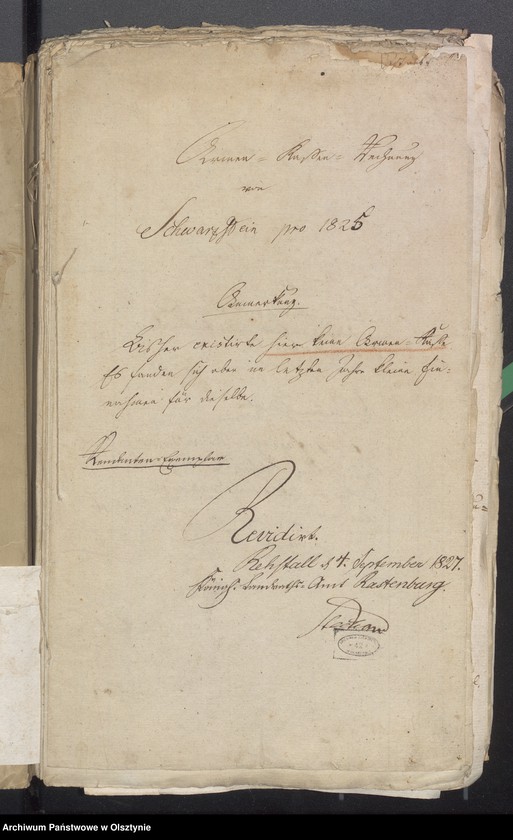 Armen-Kassen-Rechnung
von
Schwarzstein pro 1825
Anmerkung.
Bisher existirte hier keine Armen-Kasse
Es fanden sich aber im letzten Jahre kleine Ein-
nahmen für dieselbe.
Rendanten-Exemplar
Revidirt.
Rehstall d 4. September 1827.
Königl. Landraths-Amt Rastenburg.
Archiwum Państwowe w Olsztynie